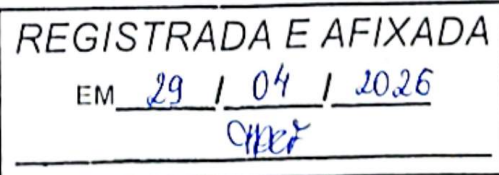 REGISTRADA E AFIXADA
EM 29 / 04 / 2026